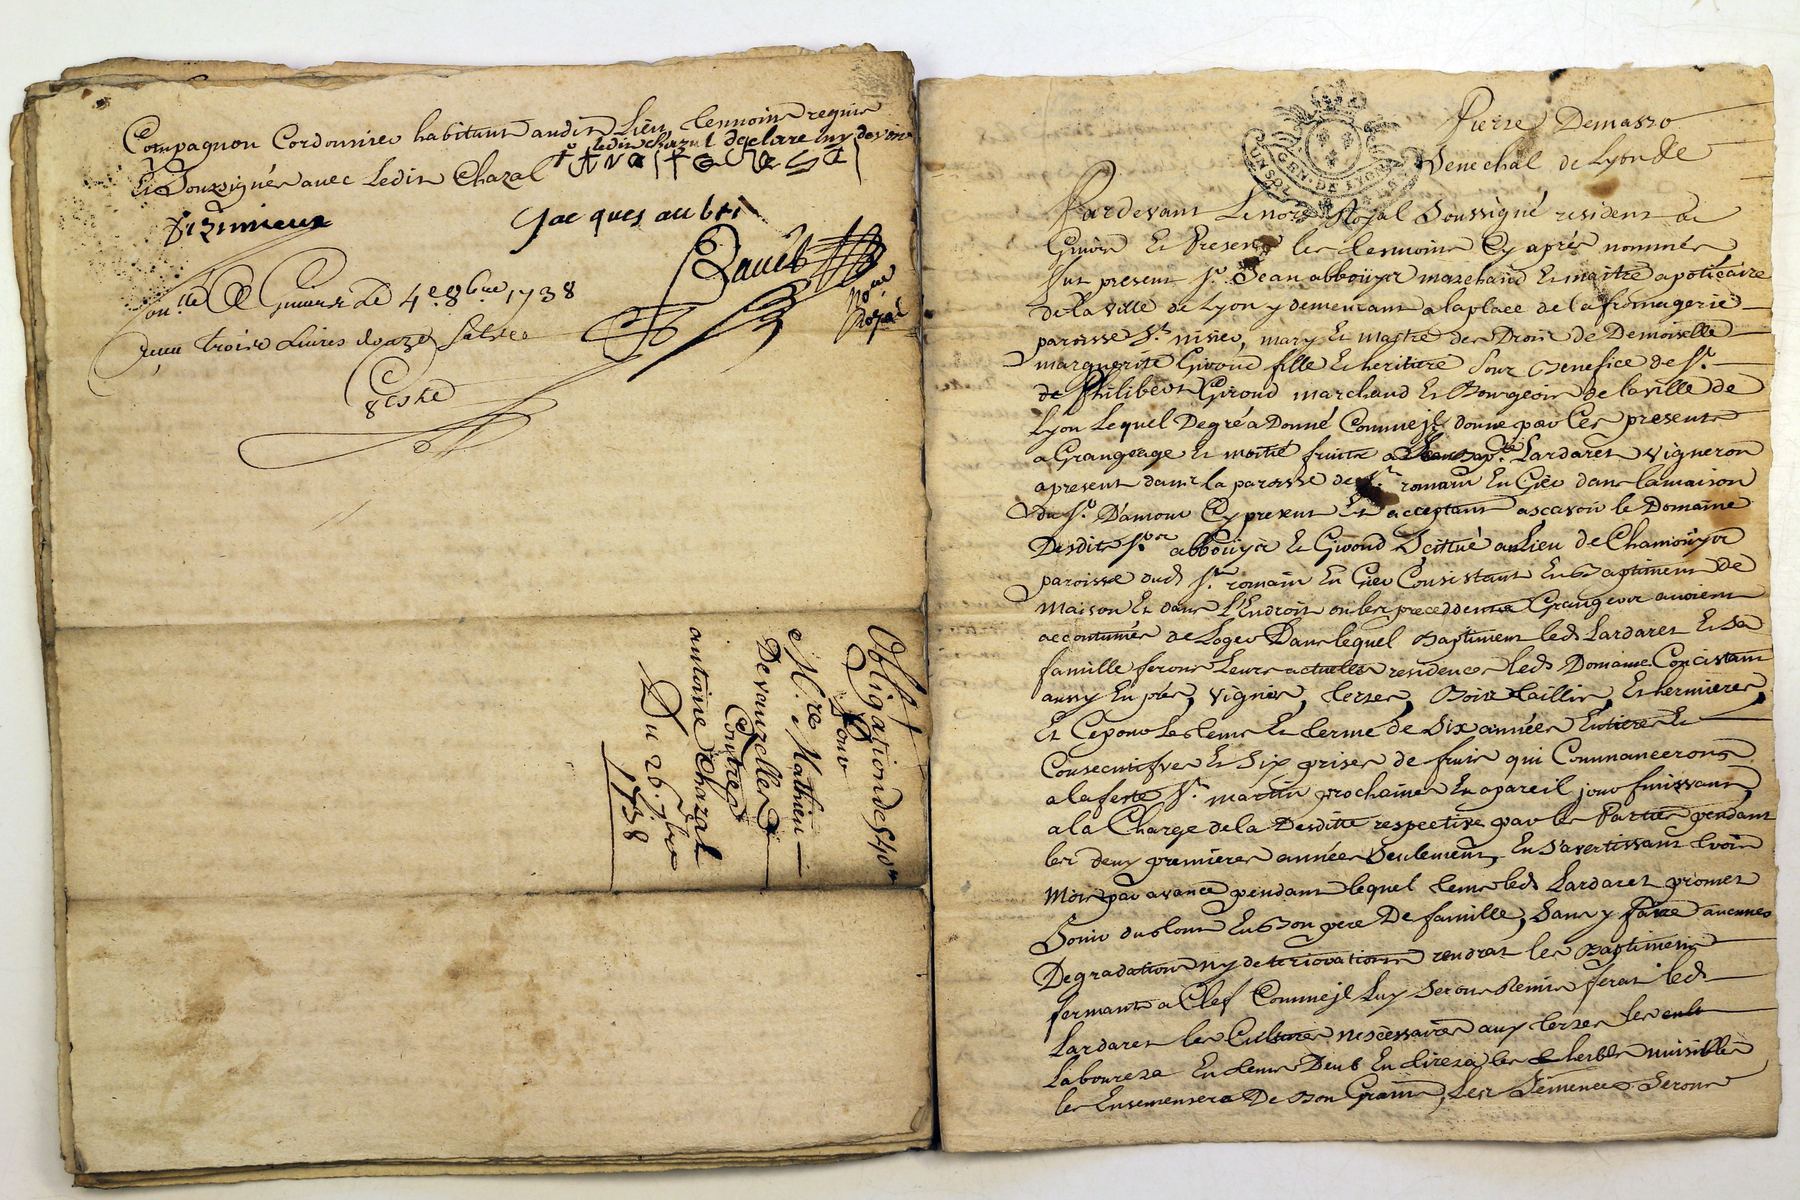 Compagnon Cordonnier habitant audit Lieu, temoins requis
ledit chazal declare ny devoir
Et Soussignés avec Ledit Chazal
Jacques aubri
Not.re
Royal
Con.lle A Givors Le 4e 8bre 1738
Reçu trois Livres douze sols
Obligation de 540 lt
Pour
M.re Mathieu
Devauzelles
Contre
antoine Chazal
Du 26. 7bre
1738
GEN. DE LYON
Pierre Demasso
Senechal de Lyon &c
Pardevant Le nore Royal Soussigné resident a
Givors Et Presents les temoins Cy après nommés
fut present Sr. Jean abboüyer marchand Et maitre apoticaire
de la ville de Lyon y demeurant a la place de la fromagerie
paroisse St. nisier, mary Et maitre des Droits de Demoiselle
marguerite Giroud fille Et heritiere Sous Benefice de Sr.
de Philibert Giroud marchand Et Bourgeois de la ville de
Lyon Lequel Degré a Donné Comme jl donne par Ces presents
a Grangeage Et moitié fruits a Jean Bap.te Lardaret vigneron
apresent dans la paroisse de St. romain En Gier dans la maison
du Sr. Damour Cy present Et acceptant ascavoir le Domaine
Desdits Srs abboüyer Et Giroud Scitué au Lieu de Chamoüyer
paroisse dud St. romain En Gier Consistant En Baptiment De
Maison Et dans L'Endroit ou les preceddents Grangers avoient
accoutumés de Loger Dans lequel Baptiment led Lardaret Et Sa
famille feront Leurs actuelles residences led Domaine Concistant
aussy En prés, vignes, terres, Bois taillis, Et hermieres,
Et Ce pour Le tems Et terme de Six années Entieres Et
Consecutifves Et Six prises de fruits qui Commanceront
a la feste St. martin prochaine En a pareil jour finissant,
a la Charge de la Desditte respective par les Parties pendant
les deux premieres années Seulement, En S'avertissant trois
Mois par avance pendant lequel tems led Lardaret promet
Jouir du tout En Bon pere De famille, Sans y faire aucunes
Degradations ny deteriorations rendrat les Baptiments
fermants a Clef Comme jl Luy Seront Remis ferat led
Lardaret les Cultures nescessaires aux terres les
Labourera En tems Deub En tirera les herbes nuisibles
les Ensemensera De Bon Grains, Les Semences Seront